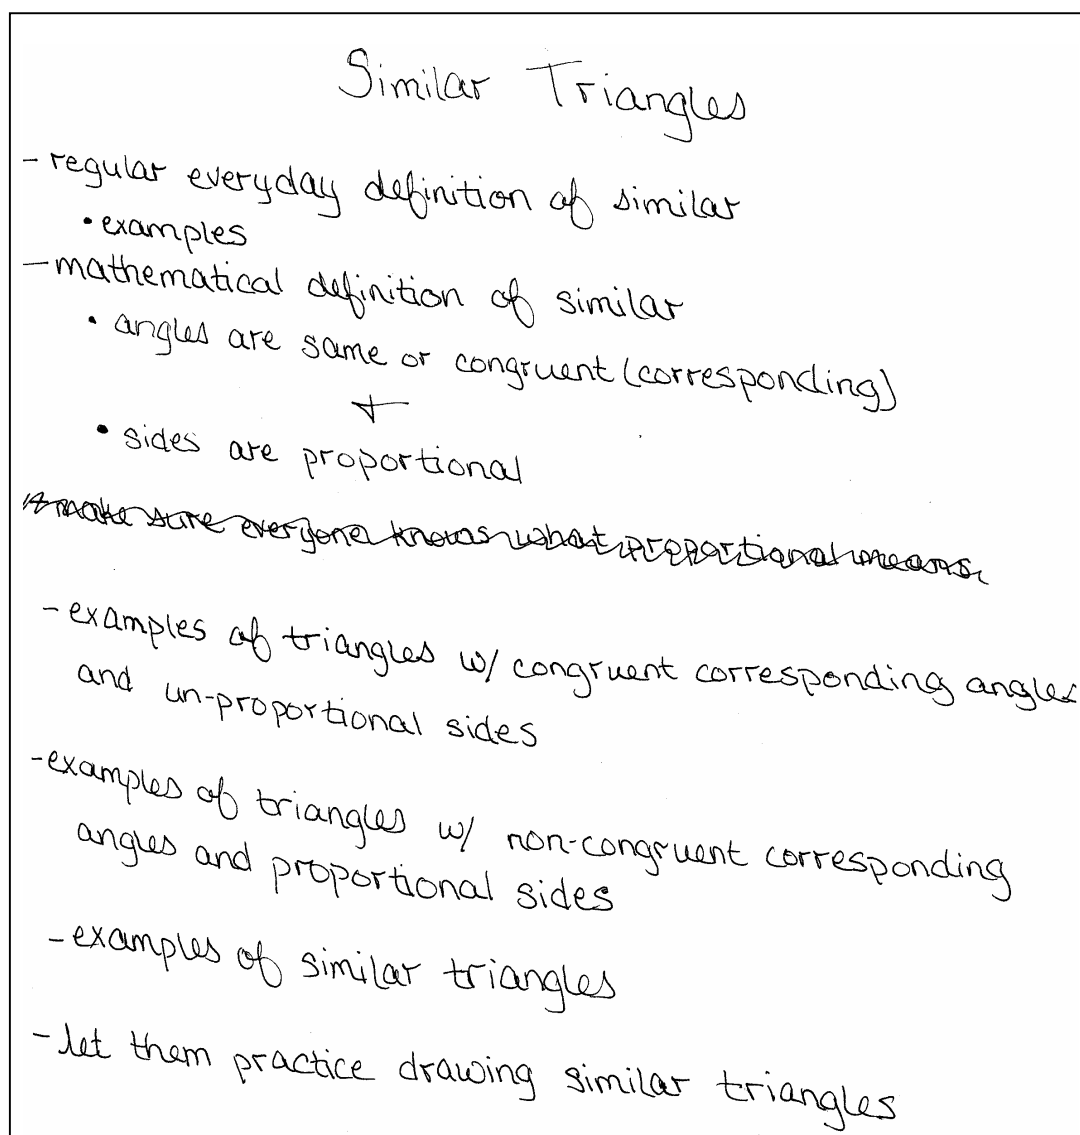 Similar Triangles
- regular everyday definition of similar
• examples
- mathematical definition of similar
• angles are same or congruent (corresponding)
+
• sides are proportional
* make sure everyone knows what proportional means.
- examples of triangles w/ congruent corresponding angles
and un-proportional sides
- examples of triangles w/ non-congruent corresponding
angles and proportional sides
- examples of similar triangles
- let them practice drawing similar triangles